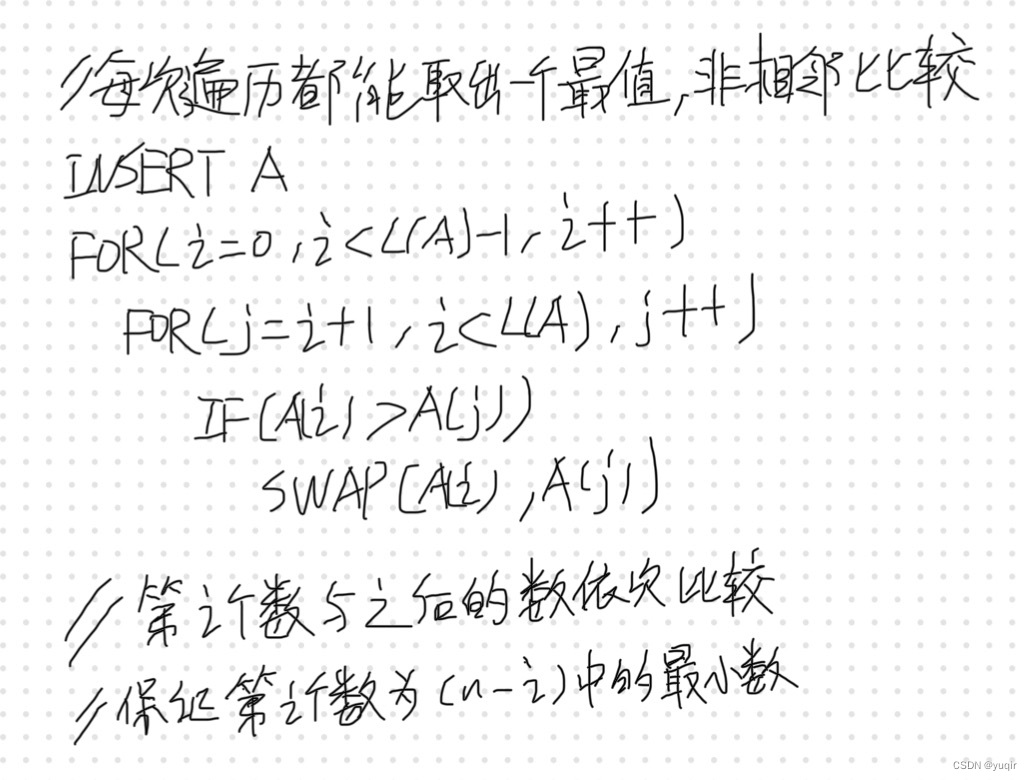 //每次遍历都能取出一个最值,非相邻比较
INSERT A
FOR(i=0,i<L(A)-1,i++)
FOR(j=i+1,i<L(A),j++)
IF(A(i)>A(j))
SWAP(A(i),A(j))
//第i个数与之后的数依次比较
//保证第i个数为(n-i)中的最小数
CSDN @yuqir